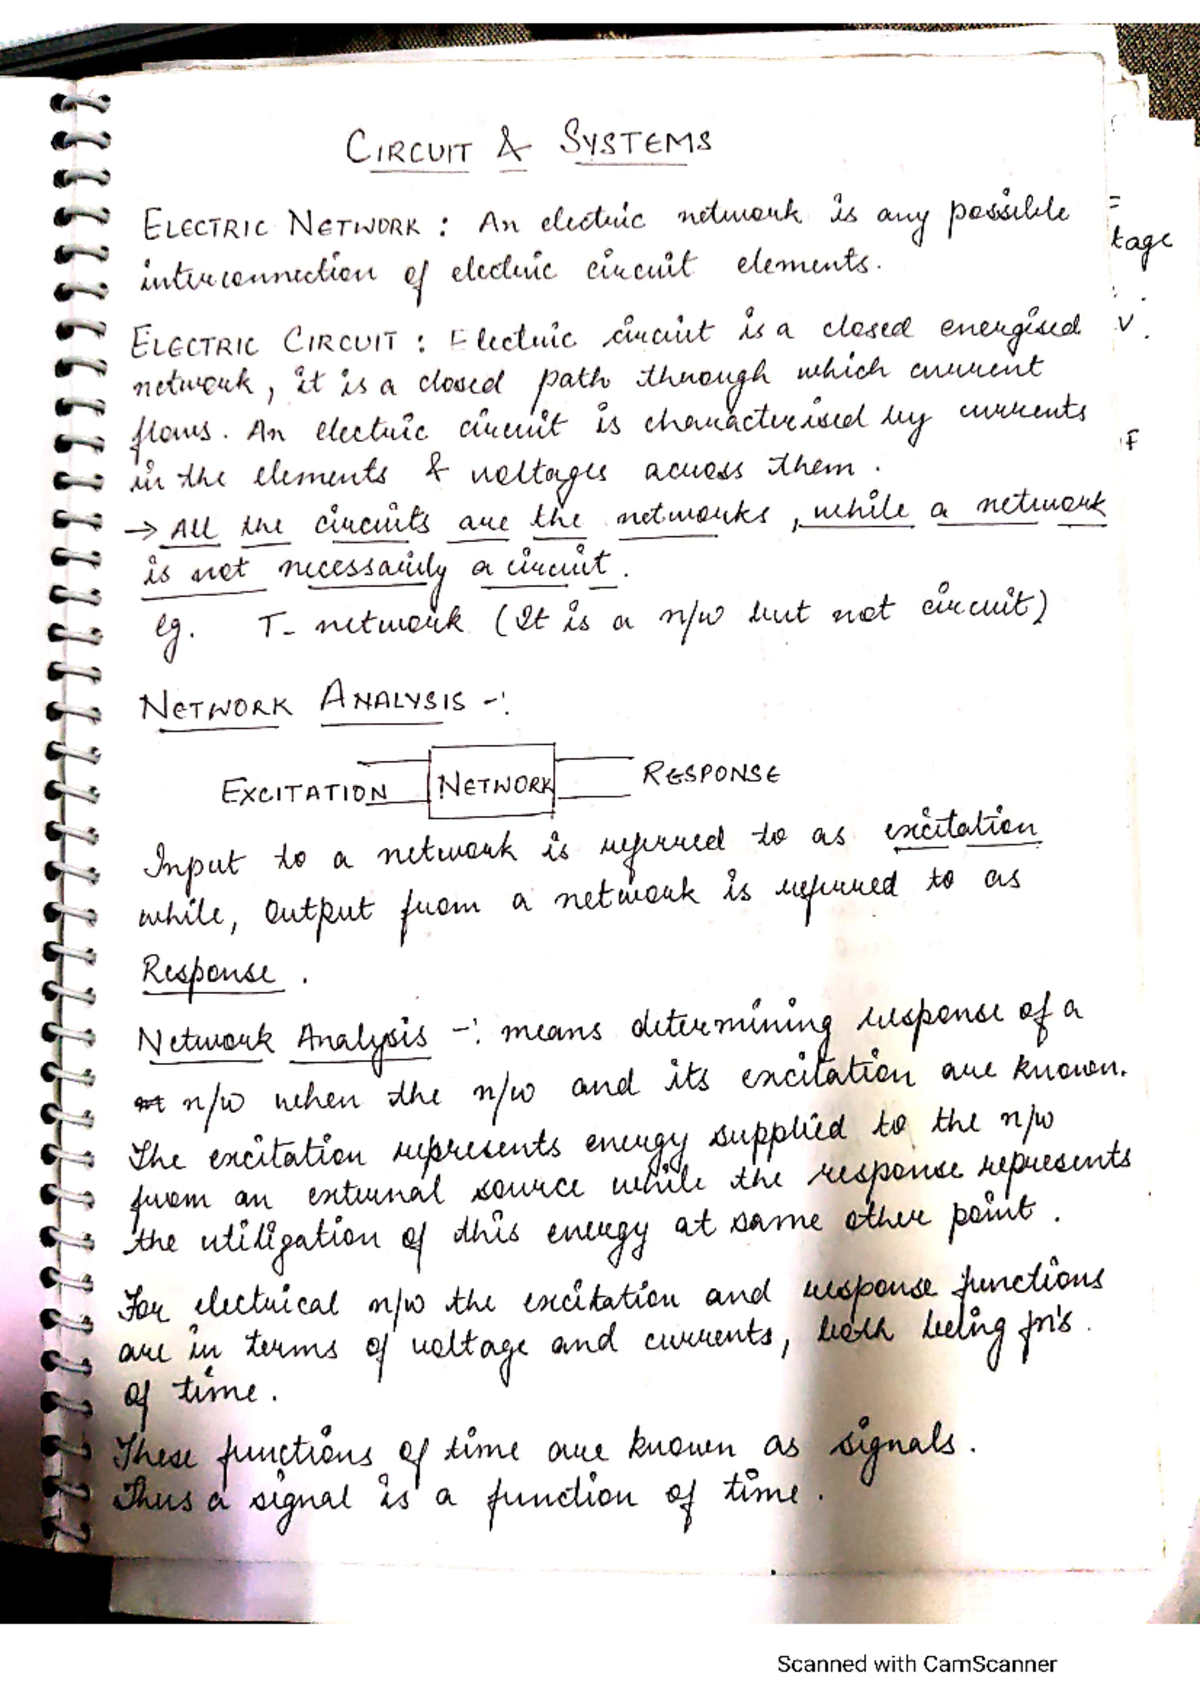 CIRCUIT & SYSTEMS
ELECTRIC NETWORK : An electric network is any possible
interconnection of electric circuit elements.
ELECTRIC CIRCUIT : Electric circuit is a closed energised
network, it is a closed path through which current
flows. An electric circuit is characterised by currents
in the elements & voltages across them .
→ All the circuits are the networks , while a network
is not necessarily a circuit .
eg. T- network (It is a n/w but not circuit)
NETWORK ANALYSIS -:
EXCITATION NETWORK RESPONSE
Input to a network is referred to as excitation
while, Output from a network is referred to as
Response .
Network Analysis -: means determining response of a
n/w when the n/w and its excitation are known.
The excitation represents energy supplied to the n/w
from an external source while the response represents
the utilization of this energy at some other point .
For electrical n/w the excitation and response functions
are in terms of voltage and currents, both being fn's .
of time .
These functions of time are known as signals .
Thus a signal is a function of time .
=
tage
V .
F
Scanned with CamScanner